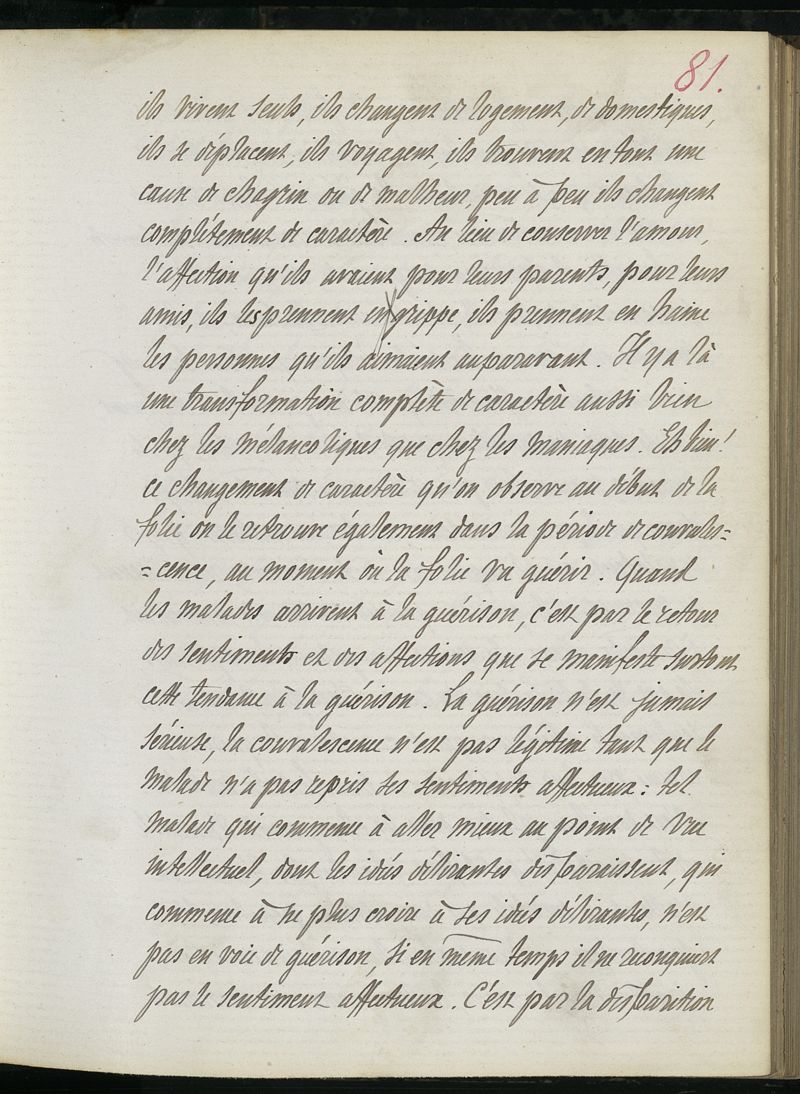 81.
ils vivent seuls, ils changent de logement, de domestiques,
ils se déplacent, ils voyagent, ils trouvent en tout une
cause de chagrin ou de malheur, peu à peu ils changent
complètement de caractère. Au lieu de conserver l'amour,
l'affection qu'ils avaient pour leurs parents, pour leurs
amis, ils les prennent en grippe, ils prennent en haine
les personnes qu'ils aimaient auparavant. Il y a là
une transformation complète de caractère aussi bien
chez les mélancoliques que chez les maniaques. Eh bien!
ce changement de caractère qu'on observe au début de la
folie on le retrouve également dans la période de convales=
=cence, au moment où la folie va guérir. Quand
les malades arrivent à la guérison, c'est par le retour
des sentiments et des affections que se manifeste surtout
cette tendance à la guérison. La guérison n'est jamais
sérieuse, la convalescence n'est pas légitime tant que le
malade n'a pas repris ses sentiments affectueux: tel
malade qui commence à aller mieux au point de vue
intellectuel, dont les idées délirantes disparaissent, qui
commence à ne plus croire à ses idées délirantes, n'est
pas en voie de guérison, si en même temps il ne reconquiert
pas le sentiment affectueux. C'est par la disparition